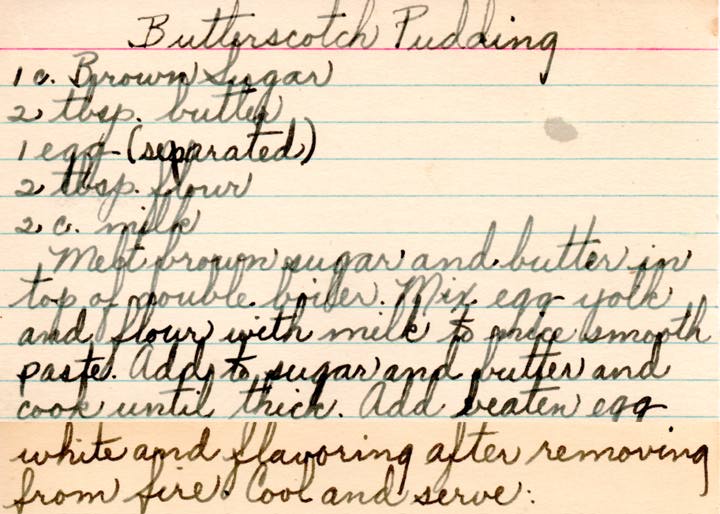 Butterscotch Pudding
1 c. Brown Sugar
2 tbsp. butter
1 egg (separated)
2 tbsp. flour
2 c. milk
Melt brown sugar and butter in
top of double boiler. Mix egg yolk
and flour with milk to nice smooth
paste. Add to sugar and butter and
cook until thick. Add beaten egg
white and flavoring after removing
from fire. Cool and serve.